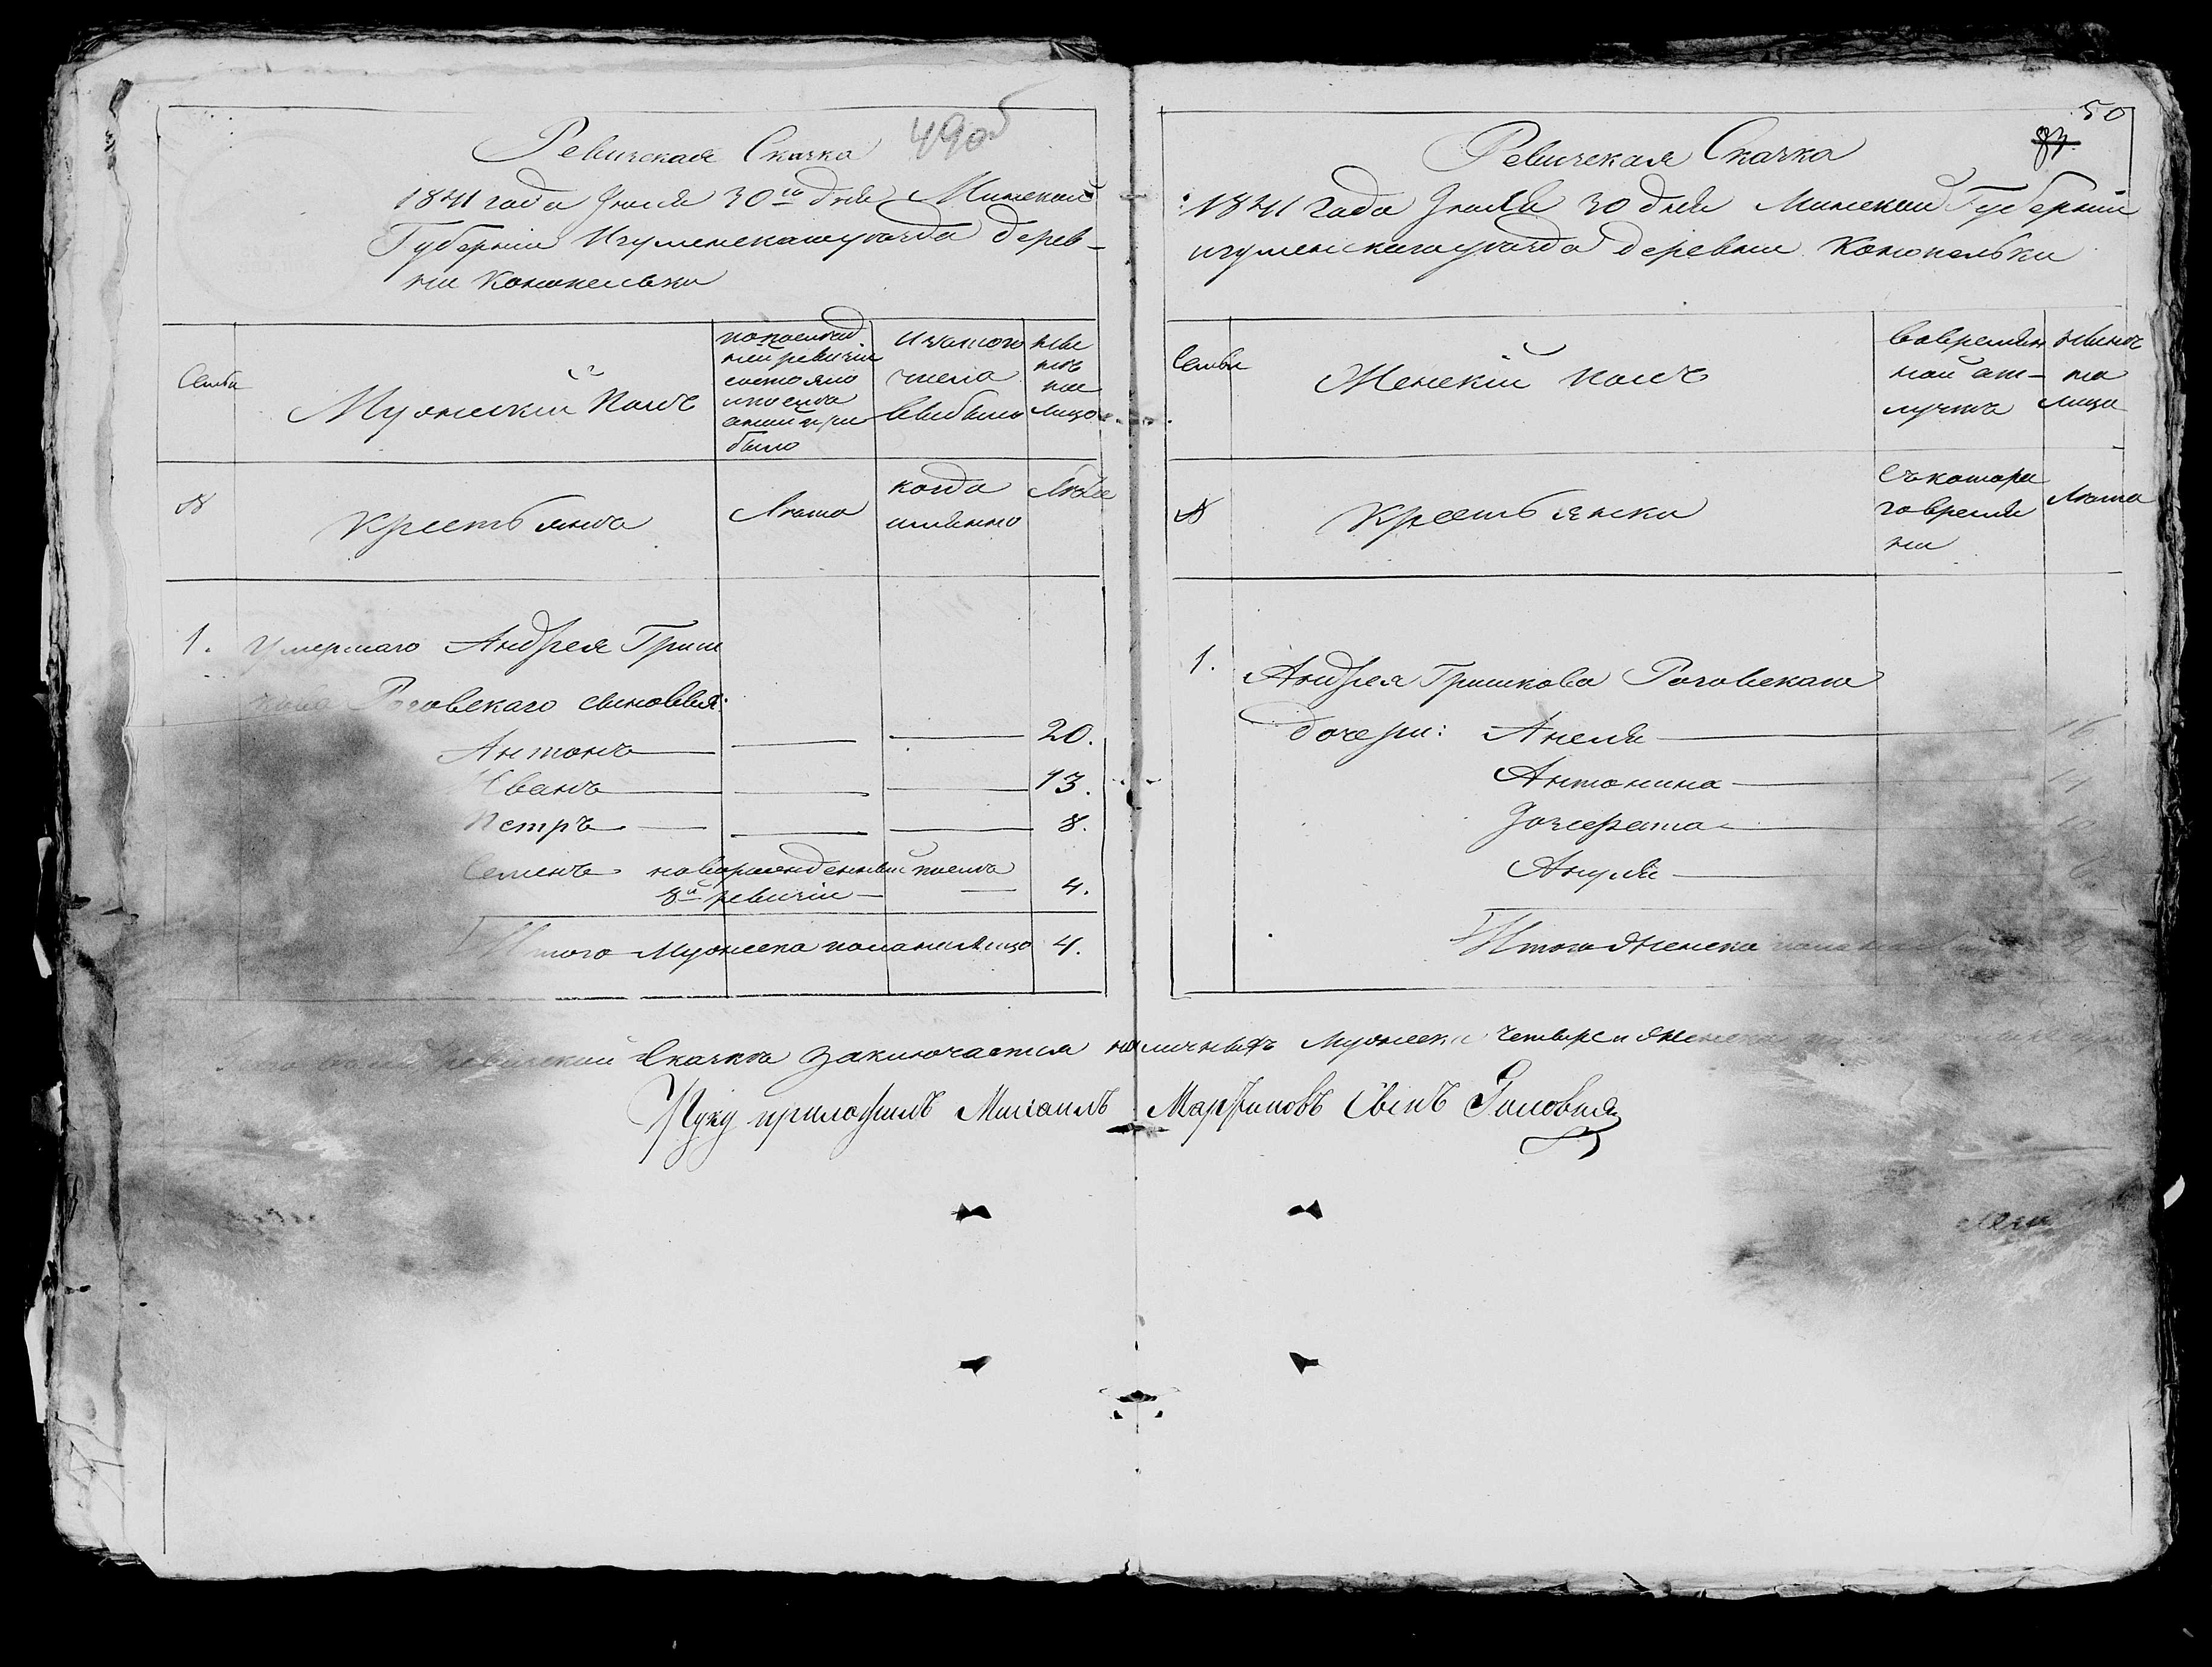 49 об
Ревизская Скаска
1841 года Июля 30го дня Минской
Губерніи Игуменскаго уѣзда дерев-
ни Конопельки
Семьи
Мужескій Полъ
по послед
ней ревизіи
состояло
и после
оной при
было
Изтого
числа
выбыло
Ны
нѣ
на
лицо
№
Крестьяне
Лѣта
когда
имянно
Лѣта
1. Умершаго Андрея Гриш
кова Роговскаго сыновья:
Антонъ 20.
Иванъ 13.
Петръ 8.
Семенъ новорожденный после
8й ревизіи 4.
Итого Мужеска пола на лицо 4.
50
Ревизская Скаска
1841 года Июля 30 дня Минской Губерніи
Игуменскаго уѣзда деревни Конопельки
Семьи
Женскій полъ
во времян
ной от-
лучкѣ
Нынѣ
на
лицо
№
Крестьянки
Съ котора
го время
ни
Лѣта
1. Андрея Гришкова Роговскаго
дочери: Анеля 16
Антонина 14
Іозефата 10
Ануля 6
Итого Женска пола на
ревизской Скаскѣ заключается наличныхъ Мужеска четыре и женска
Руку приложилъ Михаилъ Мартиновъ Сынъ Головня